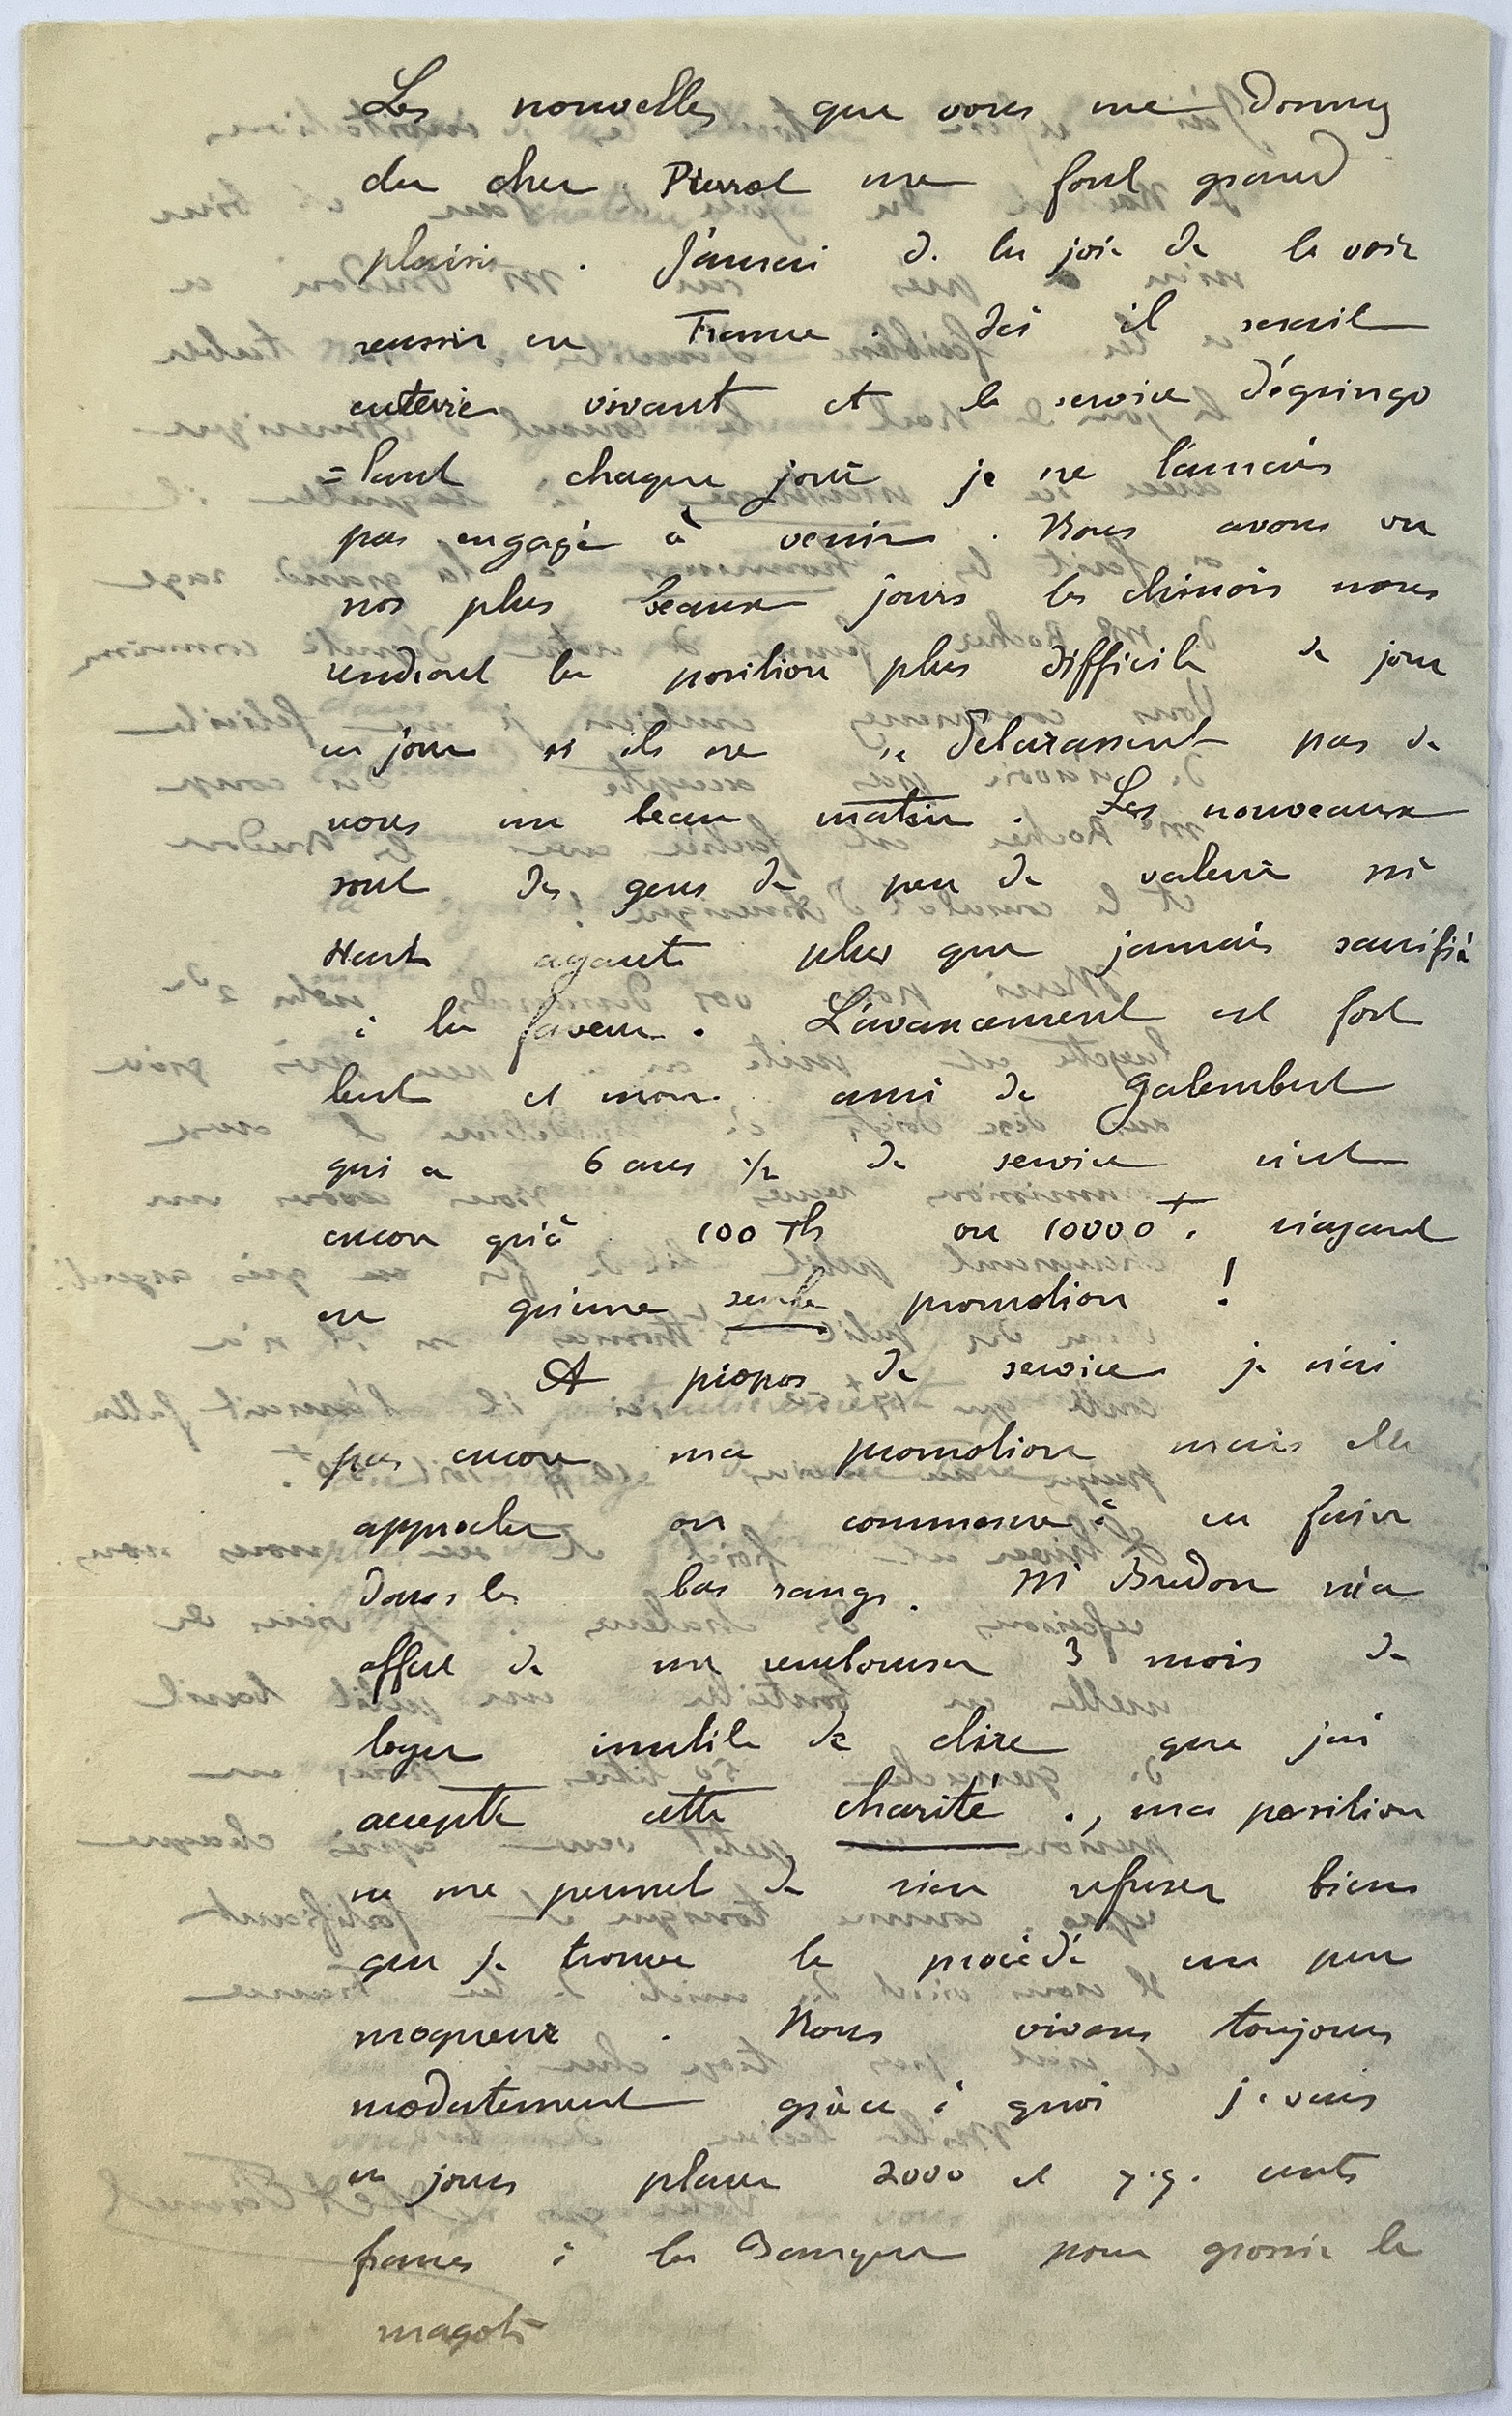 Les nouvelles que vous me donnez
du cher Pierrot me font grand
plaisir. J'aurai de la joie de le voir
réussir en France. Ici il serait
enterré vivant et le service dégringo
=lant chaque jour je ne l'aurais
pas engagé à venir. Nous avons vu
nos plus beaux jours les chinois nous
rendront la position plus difficile de jour
en jour si ils ne se débarassent pas de
nous un beau matin. Les nouveaux
sont des gens de peu de valeur Sir
Hart ayant plus que jamais sacrifié
à la faveur. L'avancement est fort
lent et mon ami de Galembert
qui a 6 ans ½ de service n'est
encore qu'à 100 Th ou 10000 f. n'ayant
eu qu'une seule promotion !
A propos de service je n'ai
pas encore ma promotion mais elle
approche on commence à en faire
dans les bas rangs. Mr Bredon m'a
offert de me rembourser 3 mois de
loyer inutile de dire que j'ai
accepté cette charité., ma position
ne me permet de rien refuser bien
que je trouve le procédé un peu
moqueur. Nous vivons toujours
modestement grâce à quoi je vais
ces jours placer 2000 et q.q. cents
francs à la Banque pour grossir le
magot